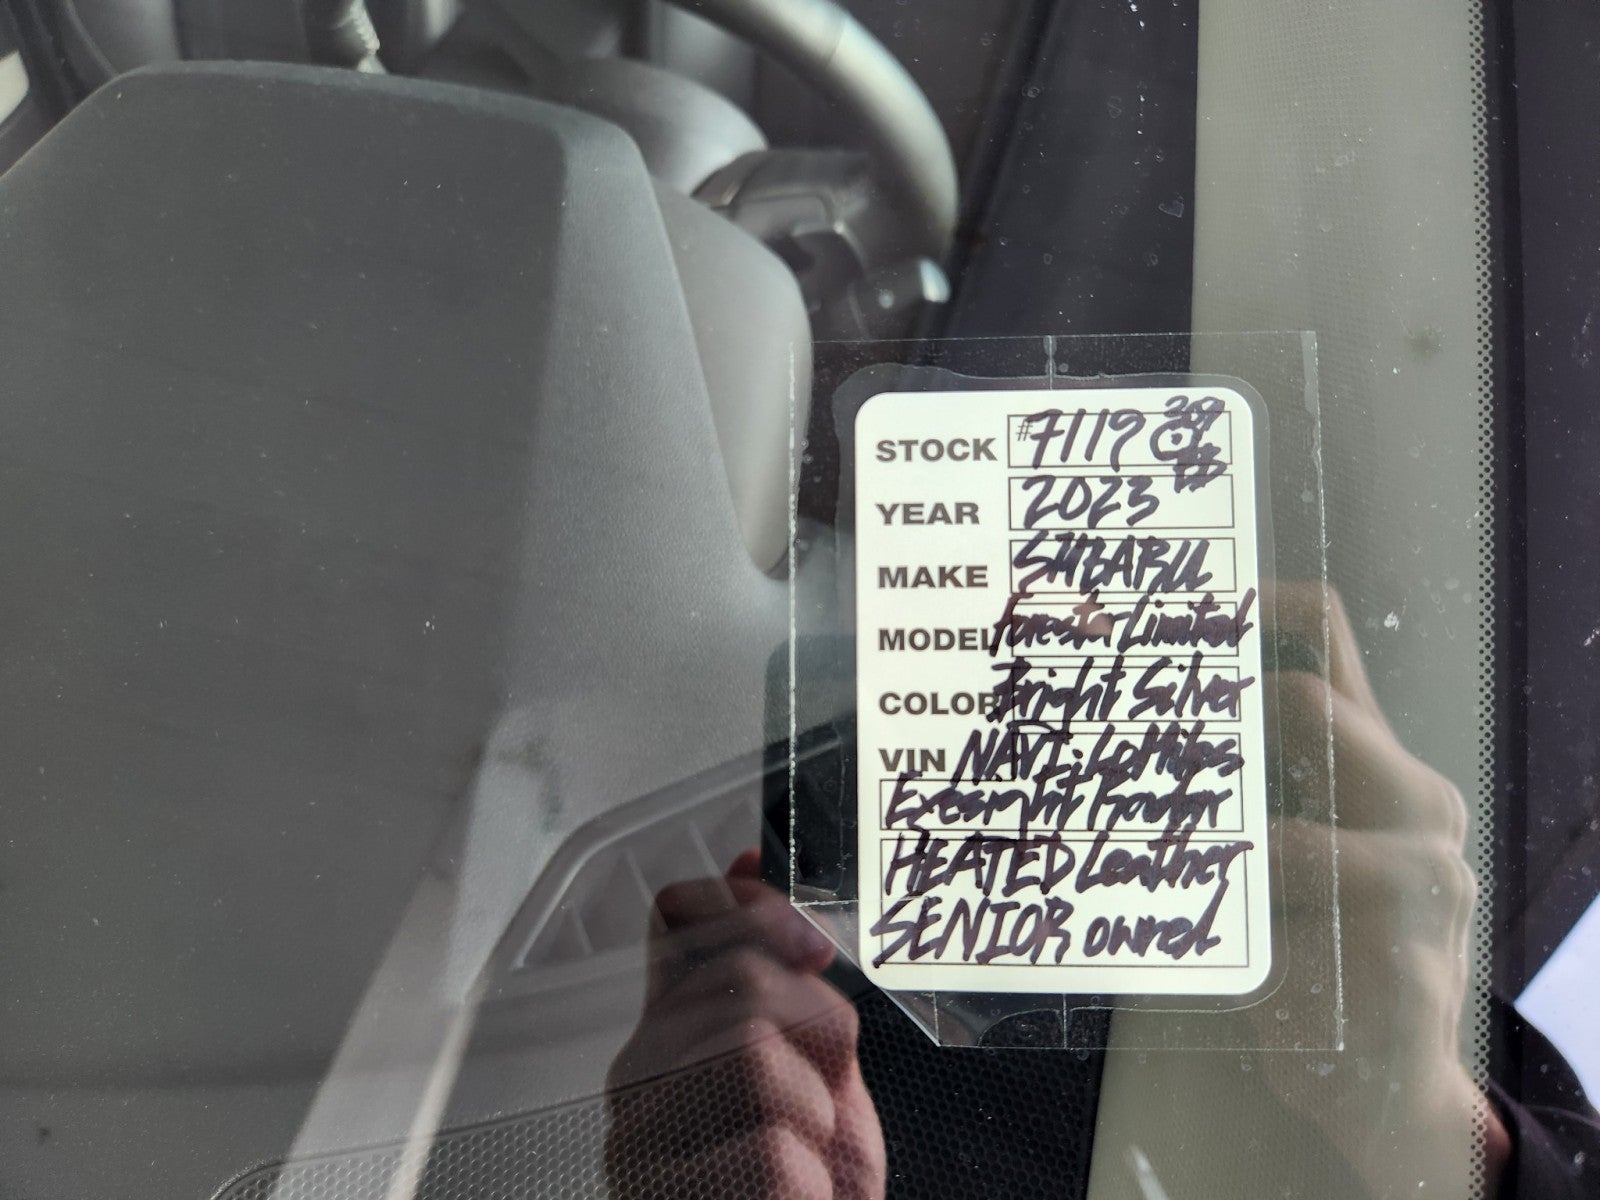 STOCK #7119
YEAR 2023
MAKE SUBARU
MODEL Forester Limited
COLOR Bright Silver
VIN NAVI. Lo Miles
Eyesight Radar
HEATED Leather
SENIOR owned